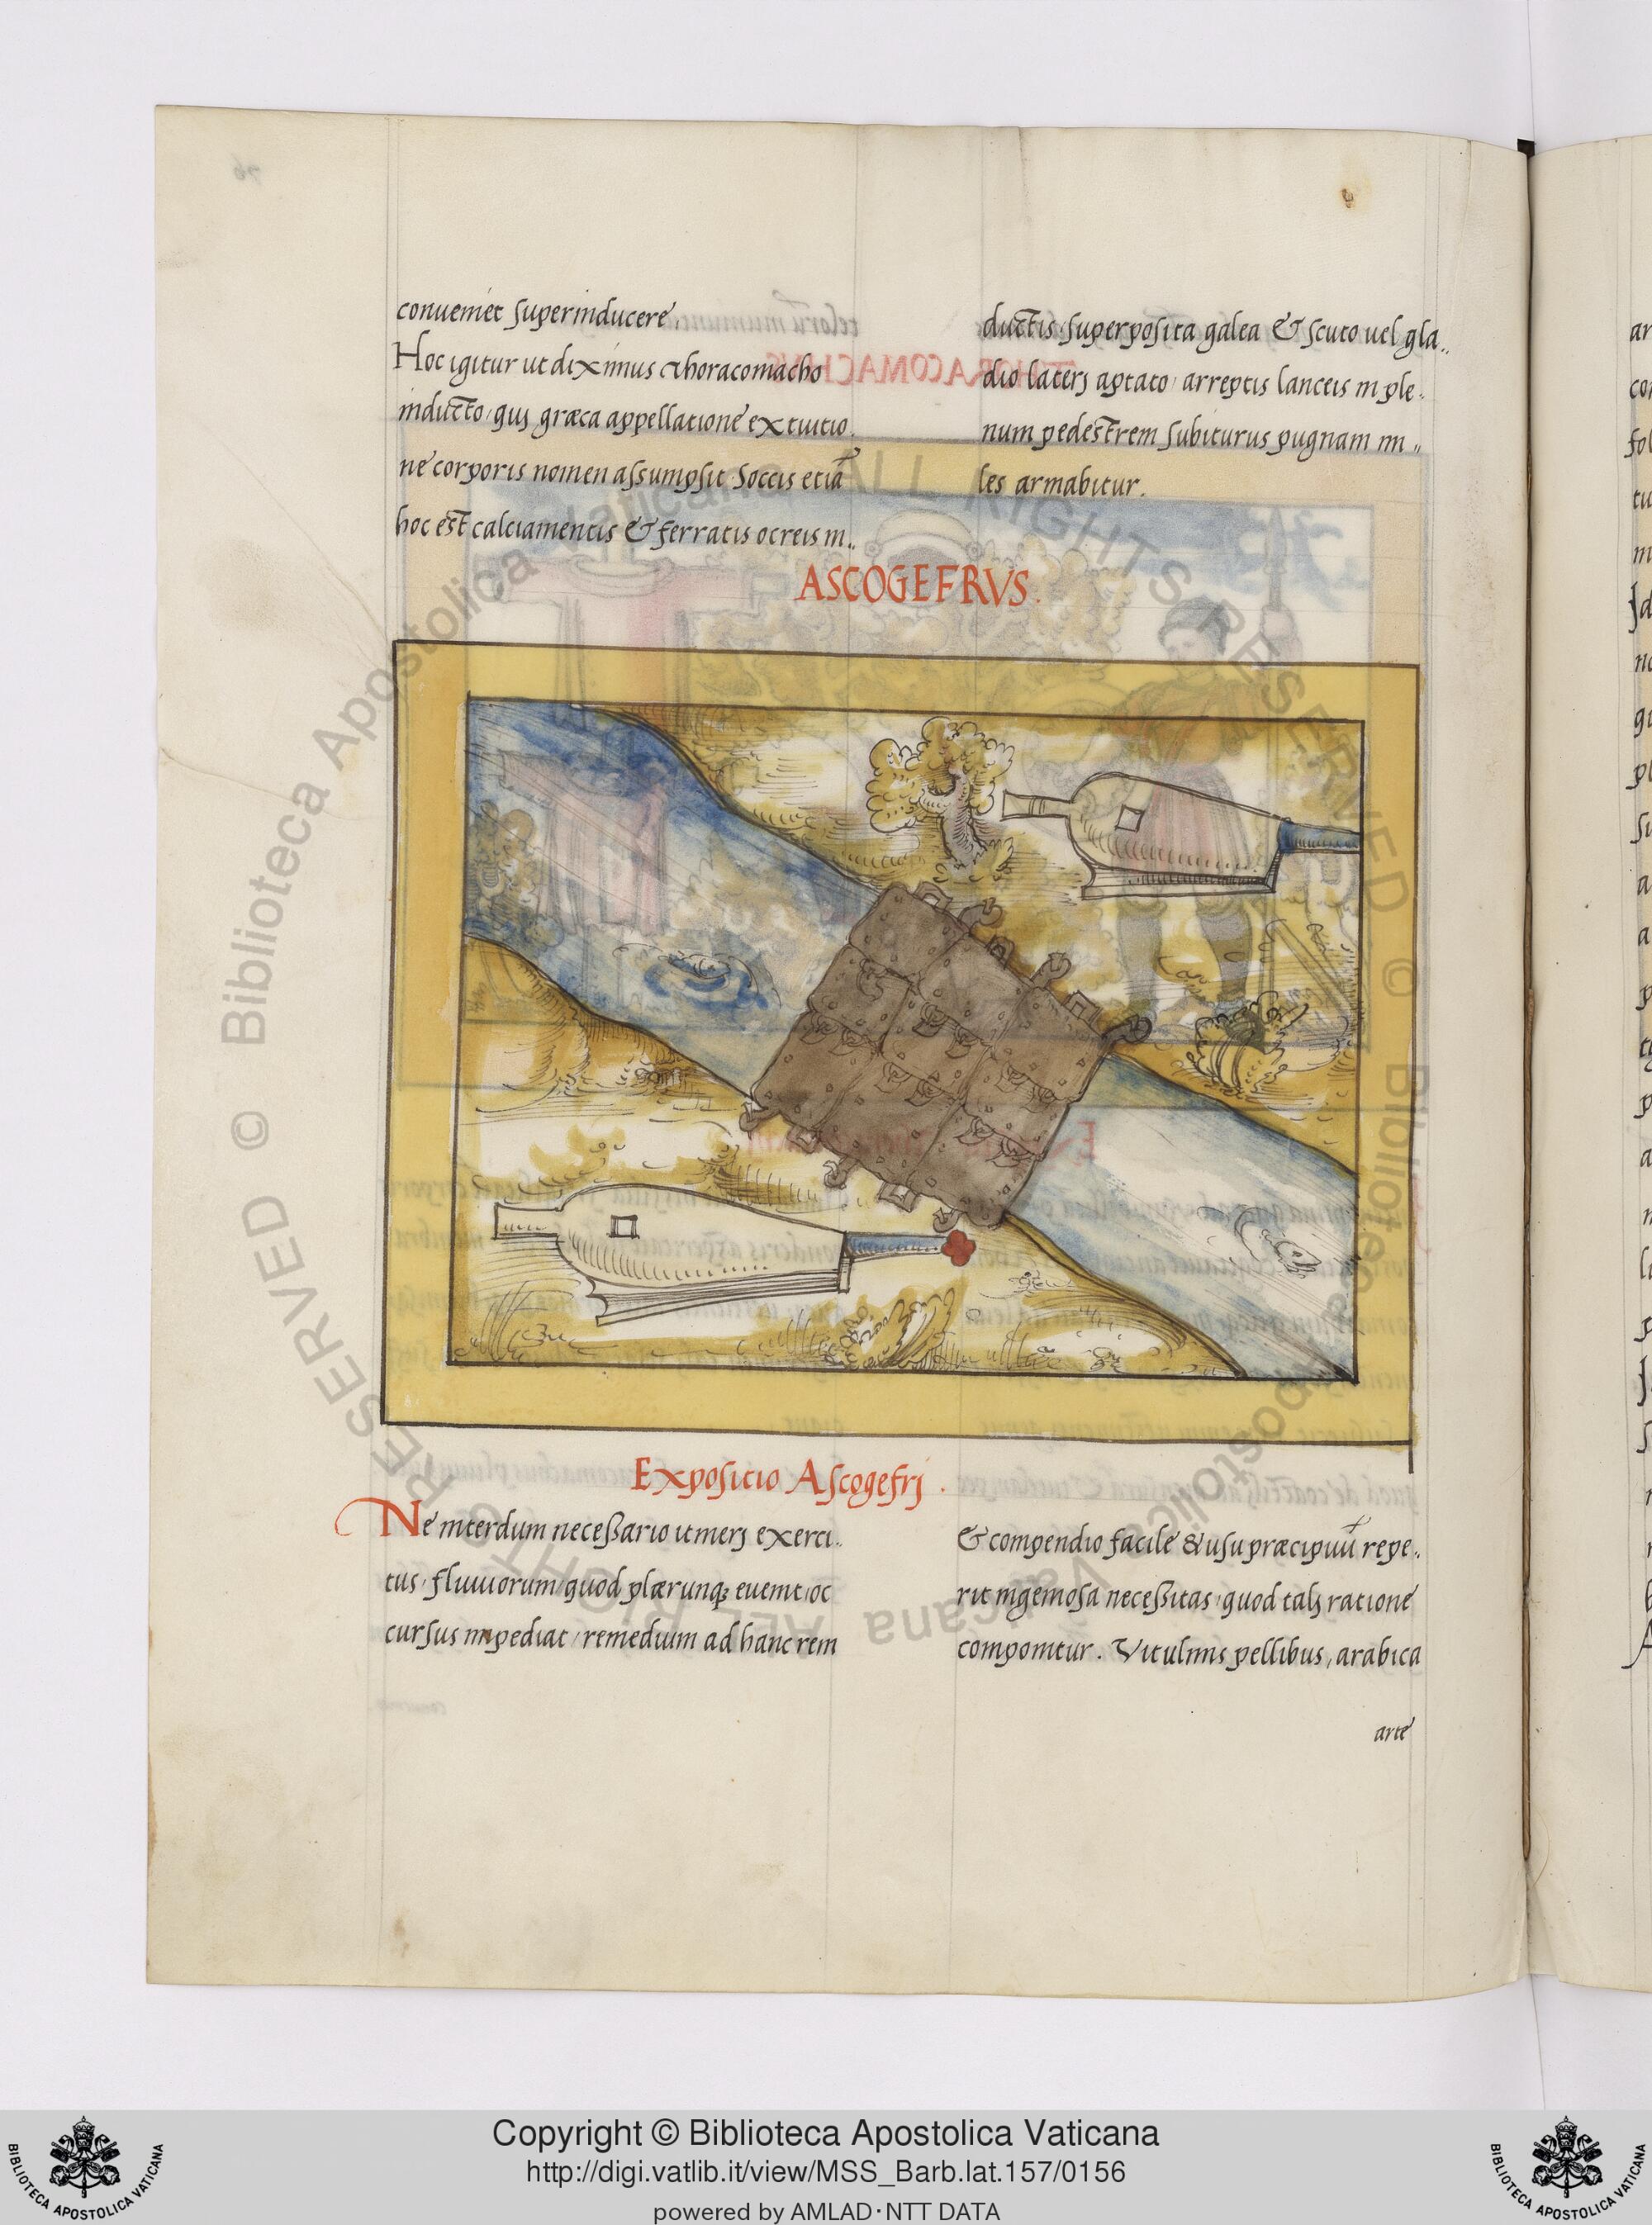 conueniet superinducere.
Hoc igitur ut diximus thoracomacho
inducto, quj græca appellatione ex tuitio
ne corporis nomen assumpsit soccis etiā
hoc est calciamentis & ferratis ocreis in..
ductis superposita galea & scuto uel gla..
dio laterj aptato, arreptis lanceis in ple.
num pedestrem subiturus pugnam mi..
les armabitur.
ASCOGEFRVS.
Expositio Ascogefrj.
Ne interdum necessario itinerj exerci..
tus, fluuiorum, quod plærunq; euenit, oc
cursus impediat, remedium ad hanc rem
& compendio facile & usu præcipuū repe..
rit ingeniosa necessitas, quod talj ratione
componitur. Vitulinis pellibus, arabica
arte
Copyright © Biblioteca Apostolica Vaticana
http://digi.vatlib.it/view/MSS_Barb.lat.157/0156
powered by AMLAD·NTT DATA
BIBLIOTECA APOSTOLICA VATICANA
BIBLIOTECA APOSTOLICA VATICANA